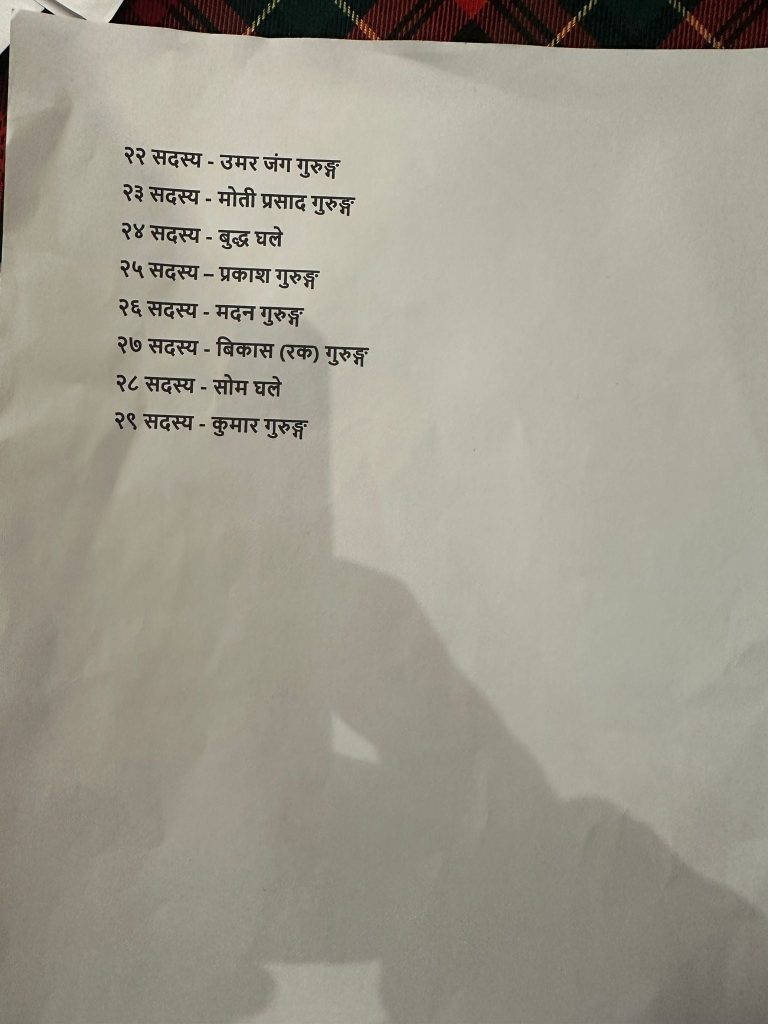 २२ सदस्य - उमर जंग गुरुङ्ग
२३ सदस्य - मोती प्रसाद गुरुङ्ग
२४ सदस्य - बुद्ध घले
२५ सदस्य – प्रकाश गुरुङ्ग
२६ सदस्य - मदन गुरुङ्ग
२७ सदस्य - बिकास (रक) गुरुङ्ग
२८ सदस्य - सोम घले
२९ सदस्य - कुमार गुरुङ्ग